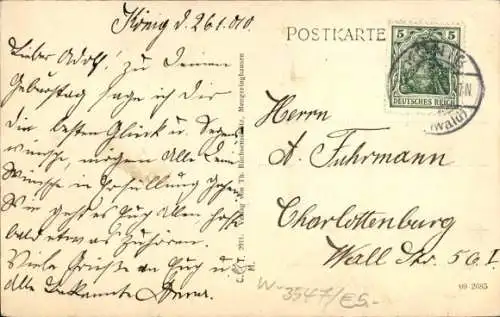 König d. 26.1.010.
Lieber Adolf! zu Deinem
Geburtstag sage ich dir
die besten Glück u. Segens
wünsche, mögen alle Deine
Wünsche in Erfüllung gehen.
Wie geht es Euch allen hoffe
bald etwas zu hören.
Viele Grüße an Euch u.
alle Bekannte
POSTKARTE
5 5
DEUTSCHES REICH
(Wald)
Herrn
A. Fuhrmann
Charlottenburg
Wall Str. 50 I
C. & T. 2911. Verlag von Th. Mengeringhausen
W-3547/ES-
09 2685